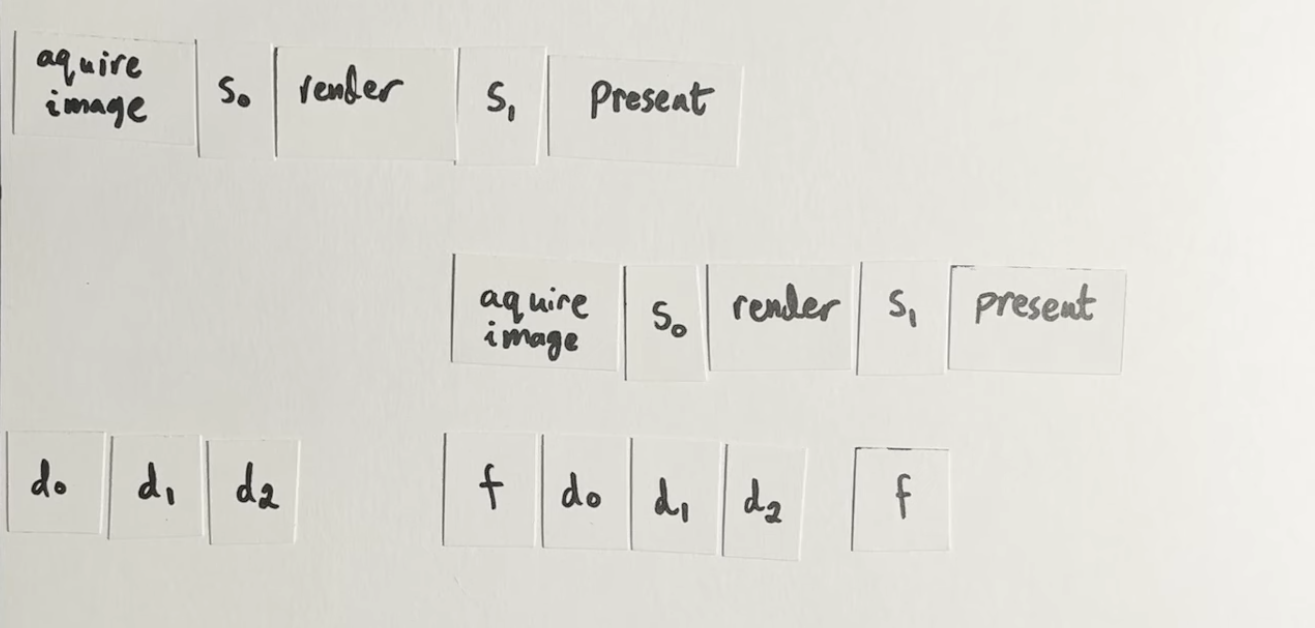 aquire
image
S₀
render
S₁
Present
aquire
image
S₀
render
S₁
present
d₀
d₁
d₂
f
d₀
d₁
d₂
f